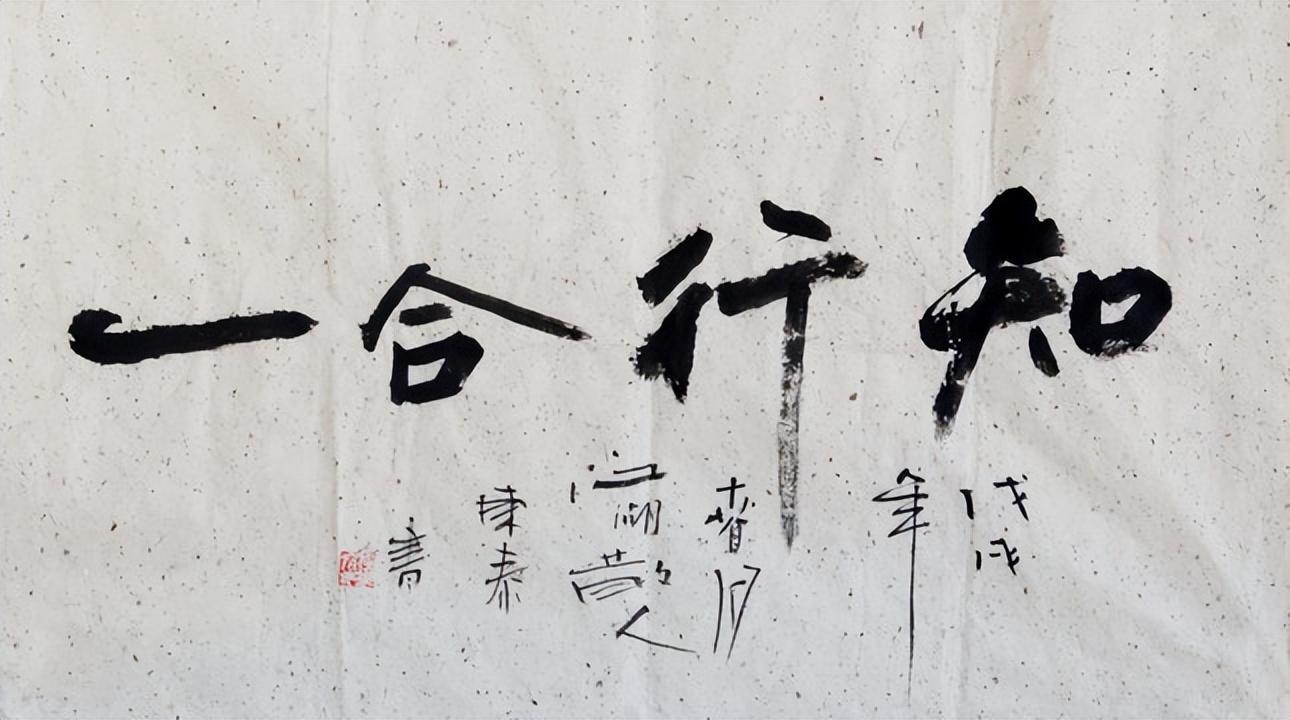 知行合一
戊戌
年
春月
江湖散人
陈泰
书